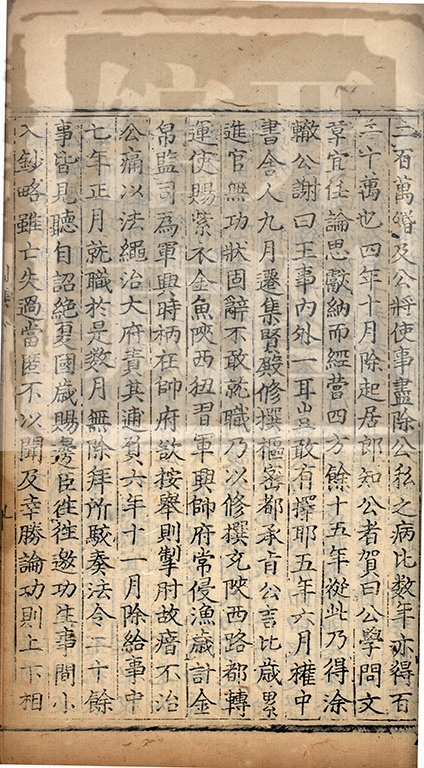 二百萬緡及公將使事盡除公私之病比数年亦得百
二十萬也四年十月除起居郎知公者賀曰公學問文
章宜任論思獻納而經營四方餘十五年從此乃得涂
轍公謝曰王事內外一耳豈敢有擇耶五年六月權中
書舍人九月遷集賢殿修撰樞密都承旨公言比歲累
進官無功狀固辭不敢就職乃以修撰充陝西路都轉
運使賜紫衣金魚陝西狃習軍興帥府常侵漁歲計金
帛監司為軍興時柄在帥府欲按舉則掣肘故瘖不治
公痛以法繩治大府責其逋負六年十一月除給事中
七年正月就職於是数月無除拜所駮奏法令二十餘
事皆見聽自詔絶夏國歲賜邊臣徃徃邀功生事間小
入鈔略雖亡失過當匿不以聞及幸勝論功則上下相